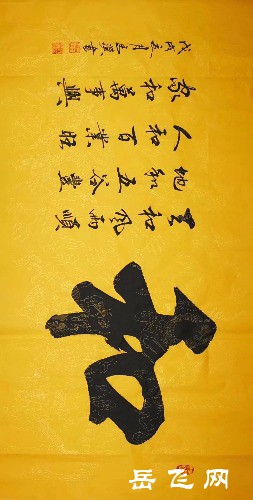 和
天和風雨順
地和五谷豐
人和百業旺
家和萬事興
戊戌 月 書
岳飞网